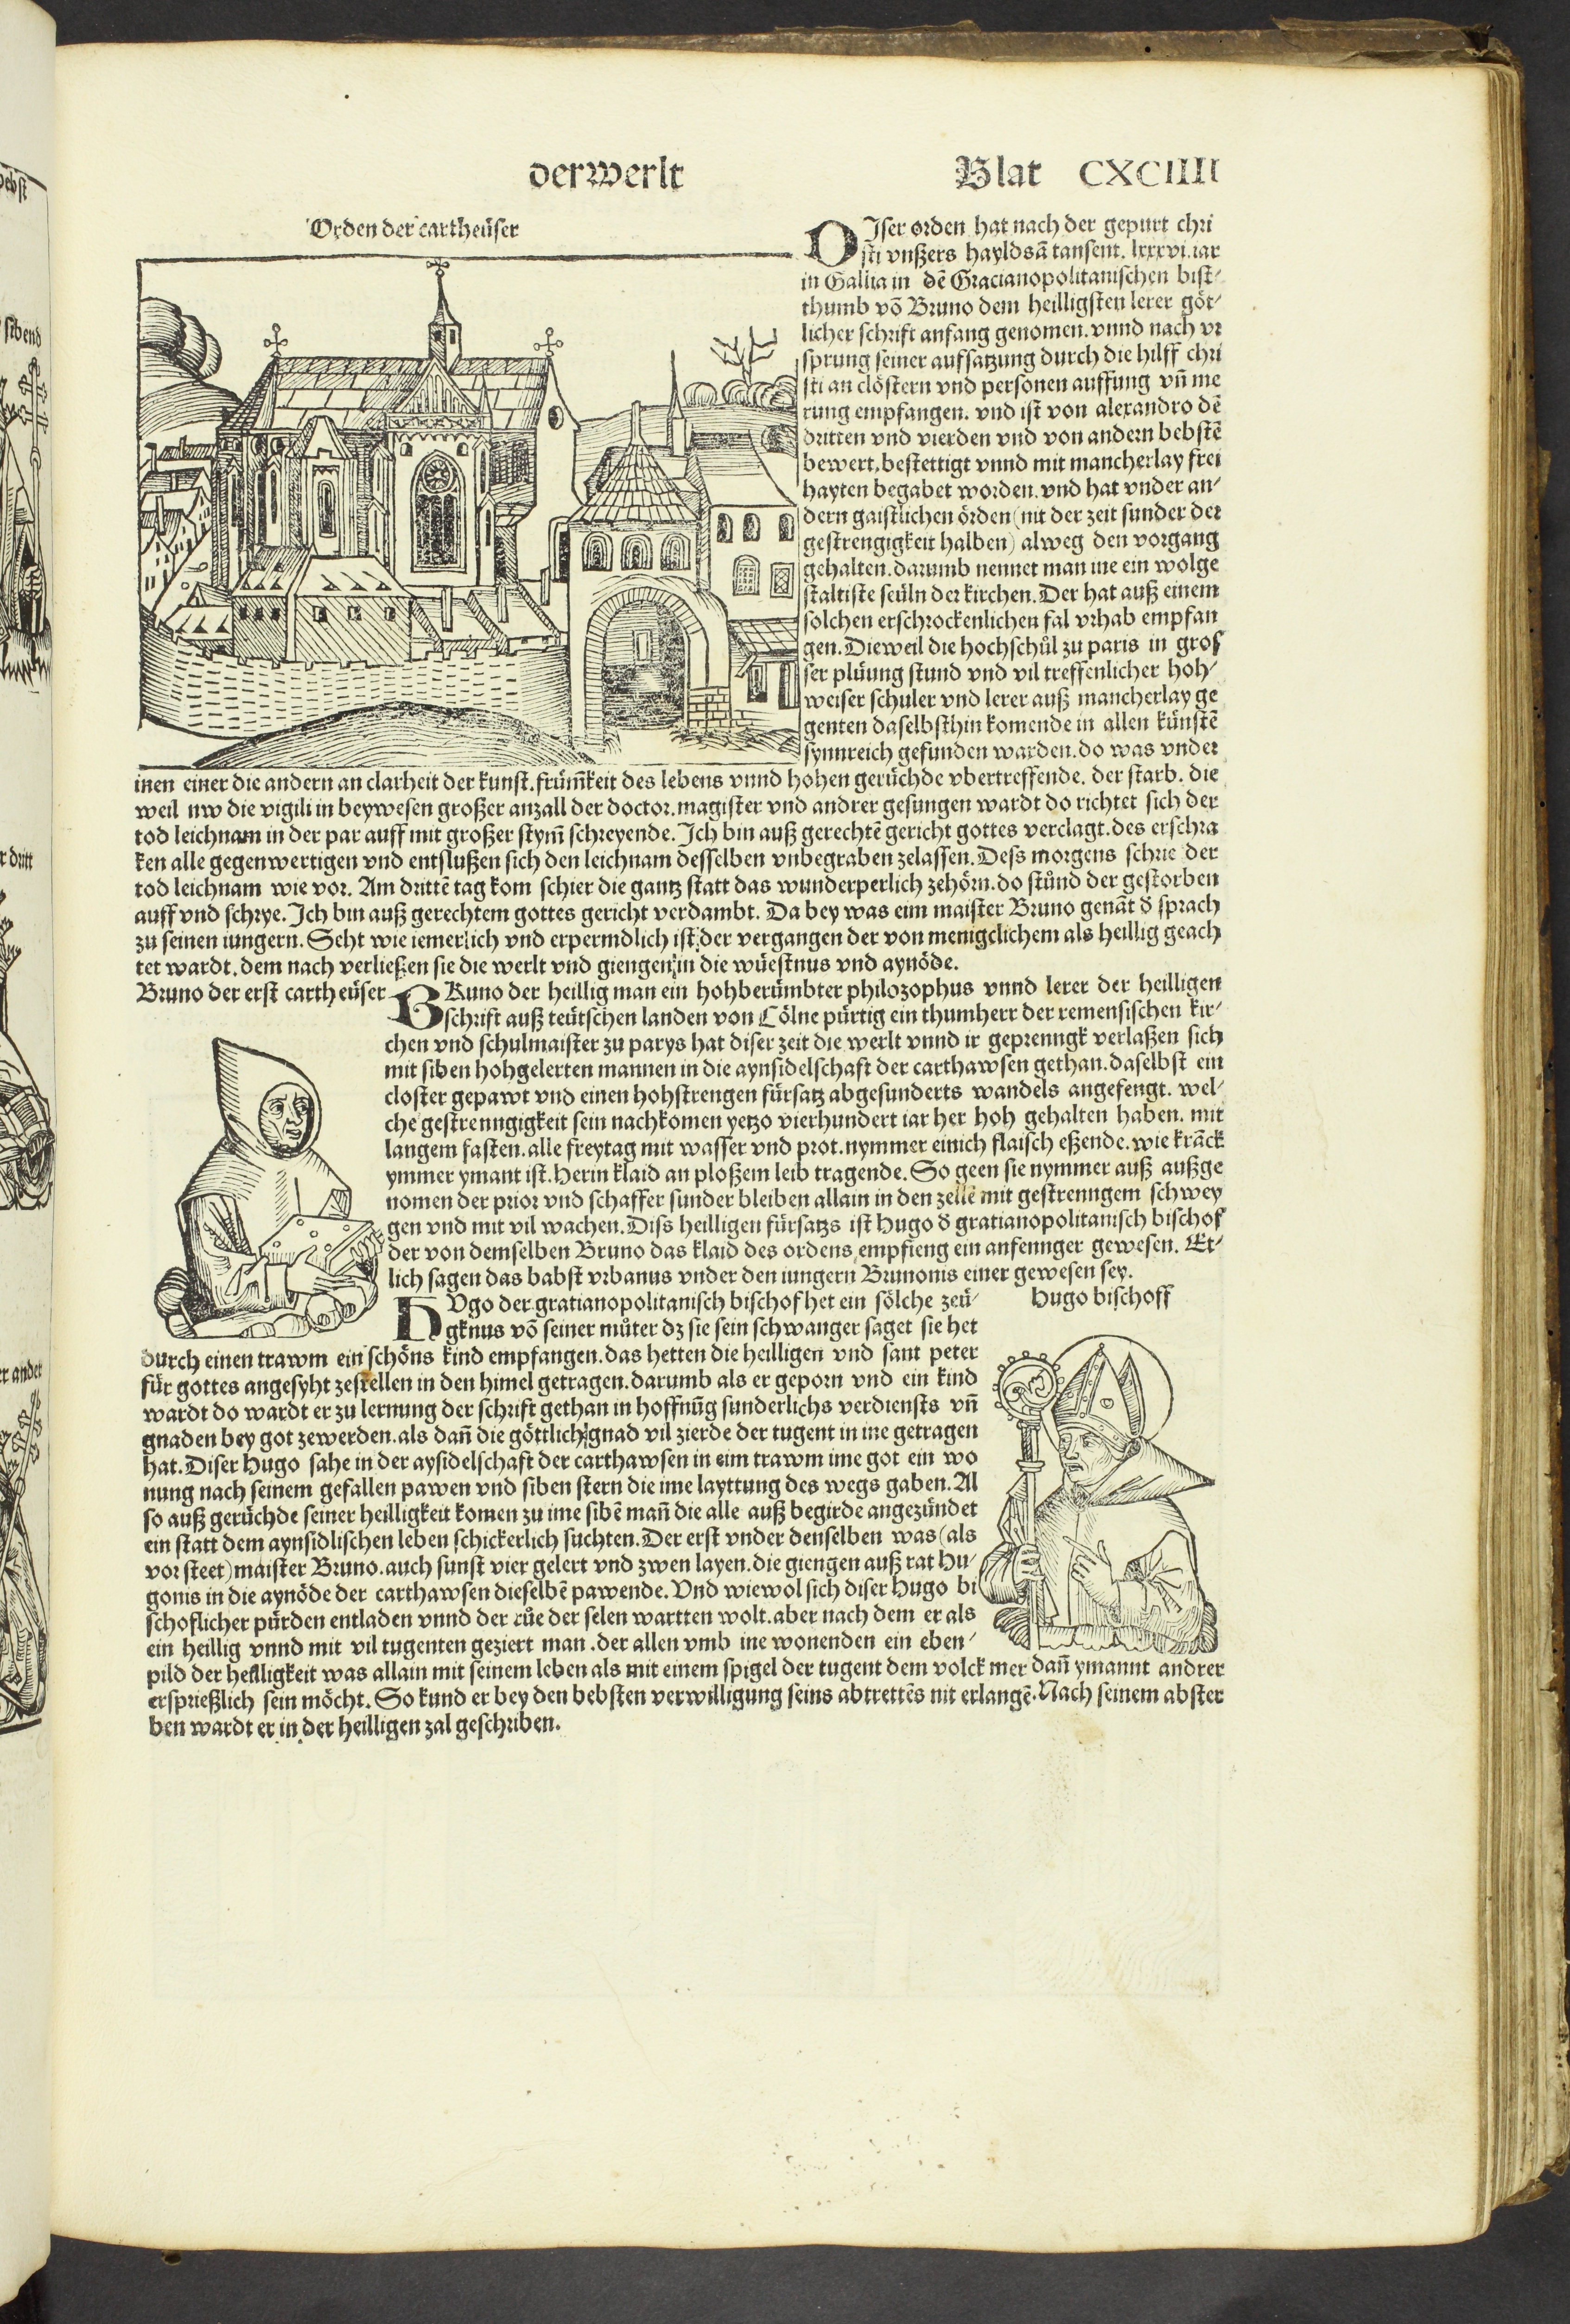 der werlt
Blat CXCIIII
Orden der cartheüser
DJser orden hat nach der gepurt chri
sti vnßers hayldsā tausent. lxxxvi. iar
in Gallia in dē Gracianopolitanischen bist-
thumb vō Bruno dem heilligsten lerer göt-
licher schrift anfang genomen. vnnd nach vr
sprung seiner aufsatzung durch die hilff chri
sti an clöstern vnd personen auffung vn̄ me
rung empfangen. vnd ist von alexandro dē
dritten vnd vierden vnd von andern bebstē
bewert, bestettigt vnnd mit mancherlay frei
hayten begabet worden. vnd hat vnder an-
dern gaistlichen örden (nit der zeit sunder der
gestrengigkeit halben) alweg den vorgang
gehalten. darumb nennet man ine ein wolge
staltiste seüln der kirchen. Der hat auß einem
solchen erschrockenlichen fal vrhab empfan
gen. Dieweil die hochschůl zu paris in gros
ser plüung stund vnd vil treffenlicher hoh-
weiser schuler vnd lerer auß mancherlay ge
genten daselbsthin komende in allen künstē
synnreich gefunden warden. do was vnder
inen einer die andern an clarheit der kunst. frūm̄keit des lebens vnnd hohen gerüchde vbertreffende. der starb. die
weil nw die vigili in beywesen großer anzall der doctor. magister vnd andrer gesungen wardt do richtet sich der
tod leichnam in der par auff mit großer stym̄ schreyende. Jch bin auß gerechtē gericht gottes verclagt. des erschra
ken alle gegenwertigen vnd entslußen sich den leichnam desselben vnbegraben zelassen. Dess morgens schrie der
tod leichnam wie vor. Am drittē tag kom schier die gantz statt das wunderperlich zehörn. do stůnd der gestorben
auff vnd schrye. Jch bin auß gerechtem gottes gericht verdambt. Da bey was eim maister Bruno genāt d̄ sprach
zu seinen iungern. Seht wie iemerlich vnd erpermdlich ist der vergangen der von menigclichem als heillig geach
tet wardt. dem nach verließen sie die werlt vnd giengen in die wüestnus vnd aynöde.
Bruno der erst cartheüser
BRuno der heillig man ein hohberümbter philozophus vnnd lerer der heilligen
schrift auß teütschen landen von Cölne pürtig ein thumherr der remensischen kir-
chen vnd schulmaister zu parys hat diser zeit die werlt vnnd ir geprenngk verlaßen sich
mit siben hohgelerten mannen in die aynsidelschaft der carthawsen gethan. daselbst ein
closter gepawt vnd einen hohstrengen fürsatz abgesunderts wandels angefengt. wel-
che gestrenngigkeit sein nachkomen yetzo vierhundert iar her hoh gehalten haben. mit
langem fasten. alle freytag mit wasser vnd prot. nymmer einich flaisch eßende. wie krāck
ymmer ymant ist. Herin klaid an ploßem leib tragende. So geen sie nymmer auß außge
nomen der prior vnd schaffer sunder bleiben allain in den zellē mit gestrenngem schwey
gen vnd mit vil wachen. Diss heilligen fürsatzs ist Hugo d̄ gratianopolitanisch bischof
der von demselben Bruno das klaid des ordens empfieng ein anfennger gewesen. Et-
lich sagen das babst vrbanus vnder den iungern Brunonis einer gewesen sey.
Hugo bischoff
HVgo der gratianopolitanisch bischof het ein sölche zeü-
gknus vō seiner můter dz sie sein schwanger saget sie het
durch einen trawm ein schöns kind empfangen. das hetten die heilligen vnd sant peter
für gottes angesyht zestellen in den himel getragen. darumb als er geporn vnd ein kind
wardt do wardt er zu lernung der schrift gethan in hoffnūg sunderlichs verdiensts vn̄
gnaden bey got zewerden. als dan̄ die göttlich gnad vil zierde der tugent in ine getragen
hat. Diser Hugo sahe in der aysidelschaft der carthawsen in eim trawm ime got ein wo
nung nach seinem gefallen pawen vnd siben stern die ime layttung des wegs gaben. Al
so auß gerüchde seiner heilligkeit komen zu ime sibē man̄ die alle auß begirde angezündet
ein statt dem aynsidlischen leben schickerlich suchten. Der erst vnder denselben was (als
vor steet) maister Bruno. auch sunst vier gelert vnd zwen layen. die giengen auß rat Hu-
gonis in die aynöde der carthawsen dieselbē pawende. Vnd wiewol sich diser Hugo bi
schoflicher pürden entladen vnnd der růe der selen wartten wolt. aber nach dem er als
ein heillig vnnd mit vil tugenten geziert man. der allen vmb ine wonenden ein eben-
pild der heilligkeit was allain mit seinem leben als mit einem spigel der tugent dem volck mer dan̄ ymannt andrer
ersprießlich sein möcht. So kund er bey den bebsten verwilligung seins abtrettēs nit erlangē. Nach seinem abster
ben wardt er in der heilligen zal geschriben.